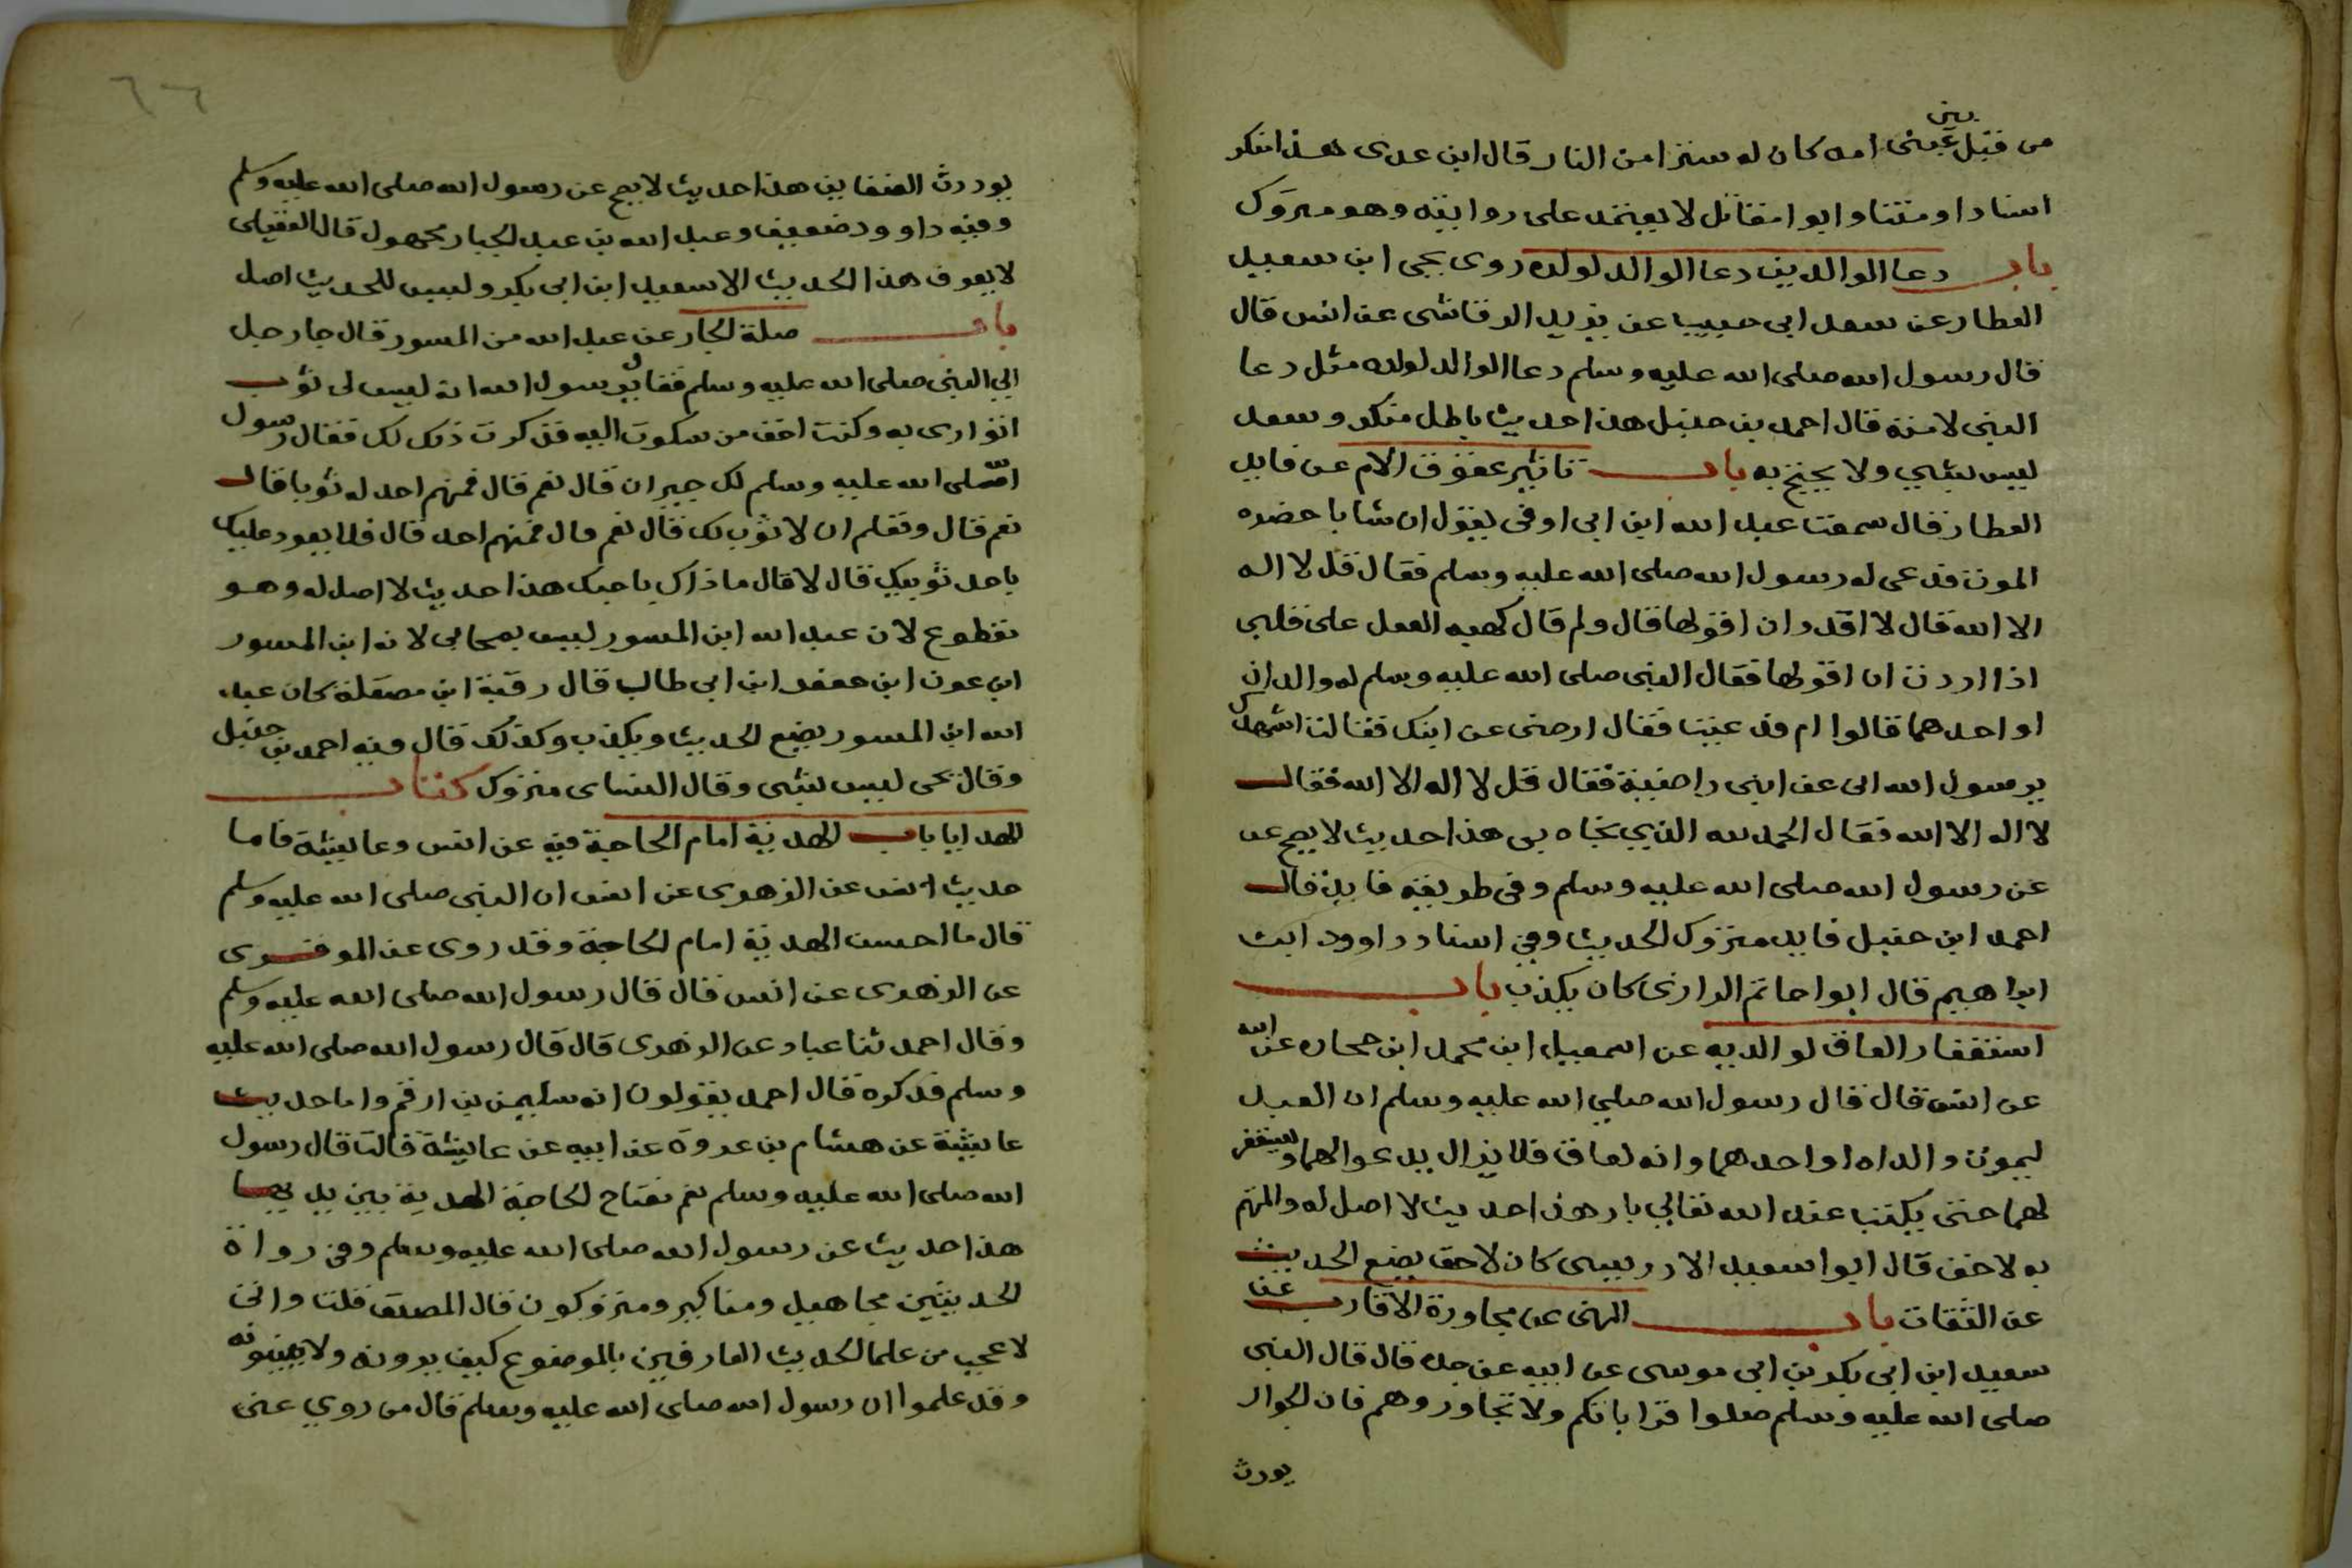 من قبل عينى امه كان له سترا من النار قال ابن عدى هذا منكر
بين
اسنادا ومتنا وابوا مقاتل لا يعتمد على روايته وهو متروك
باب دعا الوالدين دعا الوالد لولده روى يحيى ابن سعيد
العطار عن سعد ابى حبيب عن يزيد الرقاشى عن انس قال
قال رسول الله صلى الله عليه وسلم دعا الوالد لولده مثل دعا
النبى لامته قال احمد بن حنبل هذا حديث باطل منكر وسعد
ليس بشي ولا يحتج به باب تاثير عقوق الام عن فايد
العطار قال سمعت عبد الله ابن ابى اوفى يقول ان شابا حضره
الموت فدعى له رسول الله صلى الله عليه وسلم فقال قل لا اله
الا الله قال لا اقدر ان اقولها قال ولم قال كهيه القفل على قلبى
اذا اردت ان اقولها فقال النبى صلى الله عليه وسلم له والدان
او احدهما قالوا ام فدعيت فقال ارضى عن ابنك فقالت اشهدك
يرسول الله انى عن ابنى راضية فقال قل لا اله الا الله فقال
لا اله الا الله فقال الحمد لله الذي نجاه بى هذا حديث لا يصح عن
عن رسول الله صلى الله عليه وسلم وفى طريقه فايد قال
احمد ابن حنبل فايد متروك الحديث وفى اسناد داوود ابن
ابراهيم قال ابوا حاتم الرازى كان يكذب باب
استغفار العاق لوالديه عن اسمعيل ابن محمد ابن جحاده عن الله
عن انس قال قال رسول الله صلي الله عليه وسلم ان العبد
ليموت والداه او احدهما وانه لعاق فلا يزال يدعوا لهما ويستغفر
لهما حتى يكتب عند الله تعالي بار هذا حديث لا اصل له والمتهم
به لاحق قال ابوا سعيد الادريسى كان لاحق يضع الحديث
عن الثقات باب النهى عن مجاورة الاقارب عن
سعيد ابن ابى بكر بن ابى موسى عن ابيه عن جده قال قال النبى
صلى الله عليه وسلم صلوا قراباتكم ولا تجاوروهم فان الجوار
يورث
٦٦
يورث الضغاين هذا حديث لا يصح عن رسول الله صلى الله عليه وسلم
وفيه داوود ضعيف وعبد الله بن عبد الجبار مجهول قال العقيلى
لا يعرف هذا الحديث الا سعيد ابن ابى بكر وليس للحديث اصل
باب صلة الجار عن عبد الله من المسور قال جا رجل
الي النبى صلى الله عليه وسلم فقال يرسول الله انه ليس لى ثوب
اتوارى به وكنت احق من سكوت اليه فذكرت ذلك لك فقال رسول
الله صلى الله عليه وسلم لك جيران قال نعم قال فمنهم احد له ثوبا قال
نعم قال وتعلم ان لا ثوب لك قال نعم قال فمنهم احد قال فلا يعود عليك
باحد ثوبيك قال لا قال ما ذاك باحبك هذا حديث لا اصل له وهو
نقطوع لان عبد الله ابن المسور ليس بصحابى لانه ابن المسور
ابن عون ابن جعفر ابن ابى طالب قال رقبة ابن مصقلة كان عبد
الله ابن المسور يضع الحديث ويكذب وكذلك قال فيه احمد بن حنبل
وقال يحى ليس بشى وقال النساى متروك كتاب
الهدايا باب الهدية امام الحاجة فيه عن انس وعايشة فاما
حديث انس عن الزهرى عن انس ان النبى صلى الله عليه وسلم
قال ما احسن الهدية امام الحاجة وقد روى عن الموقرى
عن الزهرى عن انس قال قال رسول الله صلى الله عليه وسلم
وقال احمد ثنا عباد عن الزهرى قال قال رسول الله صلى الله عليه
وسلم فذكره قال احمد يقولون انه سليمن بن ارقم واما حديث
عايشة عن هشام بن عروة عن ابيه عن عايشة قالت قال رسول
الله صلى الله عليه وسلم نعم مفتاح الحاجة الهدية بين يديها
هذا حديث عن رسول الله صلى الله عليه وسلم وفى رواة
الحديثين مجاهيل ومناكير ومتروكون قال المصنف قلت وانى
لا عجب من علما الحديث العارفين بالموضوع كيف يروونه ولا يبينونه
وقد علموا ان رسول الله صلى الله عليه وسلم قال من روي عنى